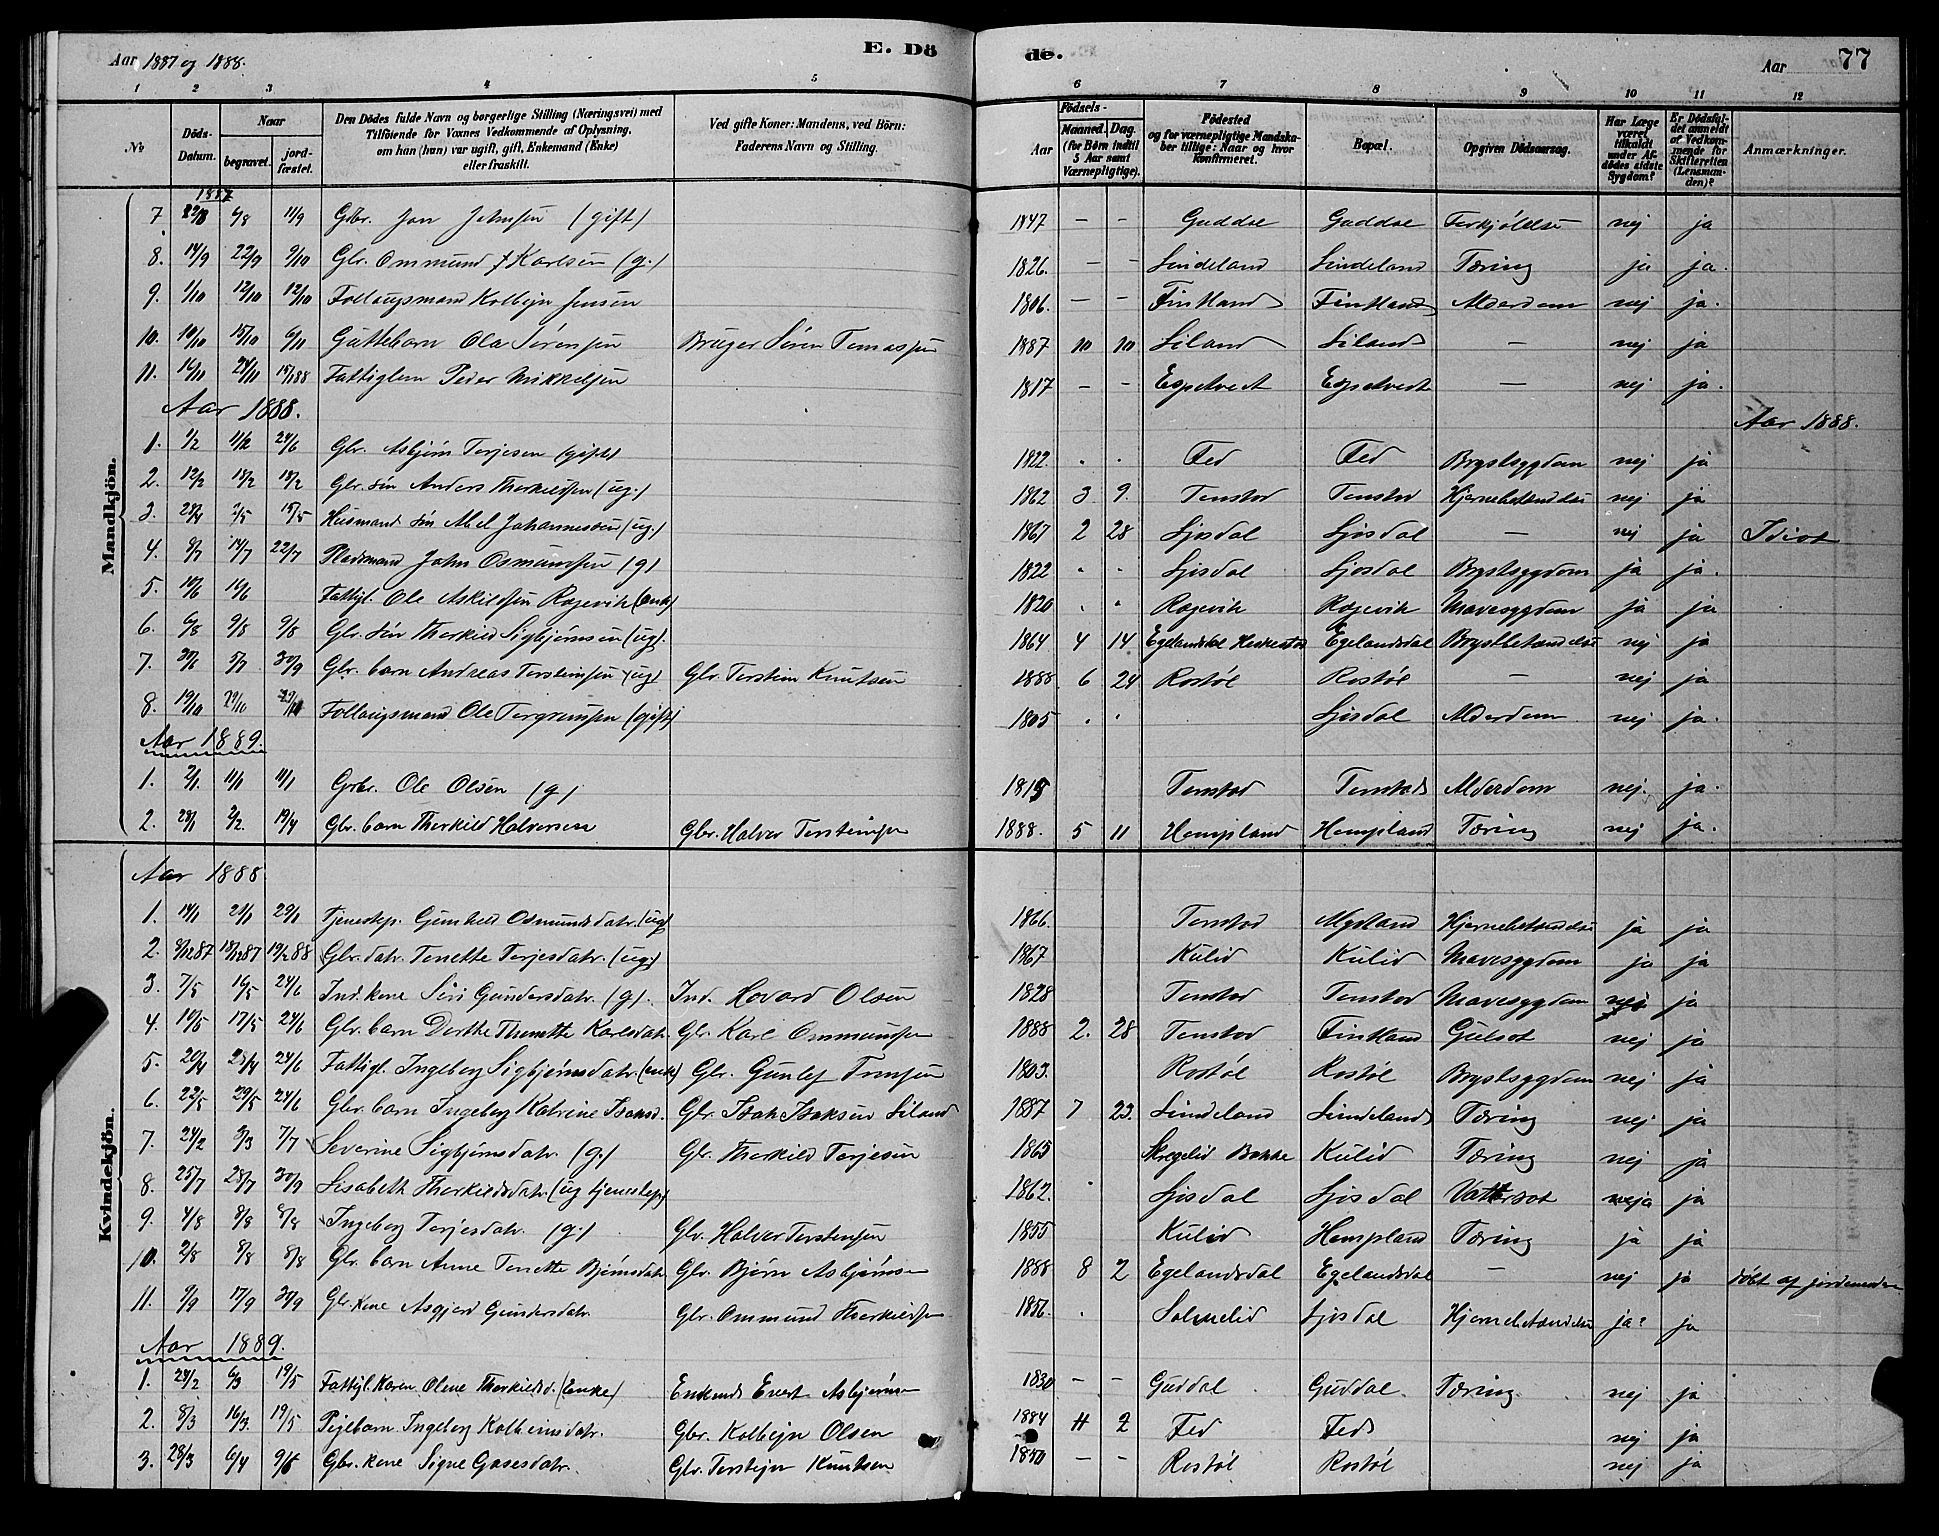 Aar 1887 og 1888.
E. Dö
de.
Aar
77
1 2 3 4 5 6 7 8 9 10 11 12
No
Döds-Datum.
Naar
begravet.
jord-fæstet.
Den Dödes fulde Navn og borgerlige Stilling (Næringsvei) med
Tilföiende for Voxnes Vedkommende af Oplysning,
om han (hun) var ugift, gift, Enkemand (Enke)
eller fraskilt.
Ved gifte Koner: Mandens, ved Börn:
Faderens Navn og Stilling.
Födsels-
Aar
Maaned. Dag.
(for Börn indtil
5 Aar samt
Værnepligtige).
Födested
og for værnepligtige Mandska-
ber tillige: Naar og hvor
Konfirmeret.
Bopæl.
Opgiven Dödsaarsag.
Har Læge
været
tilkaldt
under Af-
dödes sidste
Sygdom?
Er Dödsfal-
det anmeldt
af Vedkom-
mende for
Skifteretten
(Lensman-
den)?
Anmærkninger.
Mandkjön.
1887
7 6/8 11/9 Gbr. Jon Johnsen (gift) 1847 – – Guddal Guddal Forkjölelse nej ja
8. 14/9 22/9 9/10 Gbr. Ommund Karlsen (g.) 1826. – – Lindeland Lindeland Tæring ja ja.
9. 1/10 12/10 12/10 Follaugsmand Kolbejn Jensen 1806. – – Fintland Fintland Alderdom nej ja.
10. 10/10 15/10 6/10 Guttebarn Ole Sörensen Bruger Sören Tomassen 1887 10 10 Liland Liland – nej ja
11. 16/10 24/10 15/188 Fattiglem Peder Mikkelsen 1817 – – Espetvedt Espetvedt – nej ja.
Aar 1888.
Aar 1888.
1. 1/2 11/2 24/6 Gbr. Asbjörn Terjesen (gift) 1822. Fed Fed Brystsygdom nej ja
2. 12/2 18/2 18/2 Gbr. sön Anders Therkildsen (ug.) 1862 3 9. Tonstad Tonstad Hjernebetændelse nej ja
3. 28/4 2/5 15/5 Husmand sön Abel Johannessen (ug) 1867 2 28 Ljosdal Ljosdal – nej ja Idiot
4. 9/7 14/7 22/7 Pladsmand John Osmundsen (g) 1822 Ljosdal Ljosdal Brystsygdom ja ja.
5. 10/6 16/6 Fattigl. Ole Askildsen Røjevik (Enk) 1820 Røjevik Røjevik Mavesygdom ja ja
6. 6/8 9/8 9/8 Gbr. sön Therkild Sigbjörnsen (ug). 1864 4 14 Egelandsdal Heskestad Egelandsdal Brystbetændelse nej ja
7. 30/6 5/7 30/9 Gbr. barn Andreas Terstensen (ug) Gbr. Tersten Knutsen 1888 6 24 Rostöl Rostöl – nej ja
8. 19/10 29/10 Follaugsmand Ole Torgrimsen (gift) 1805 Ljosdal Alderdom nej ja.
Aar 1889.
1. 2/1. 11/1 11/1 Gbr. Ole Olsen (g) 1815 Tonstad Tonstad Alderdom nej. ja.
2. 28/1 2/2. 19/4 Gbr. barn Therkild Halversen Gbr. Halver Terstensen 1888. 5 11 Hompland Hompland Tæring nej ja.
Kvindekjön.
Aar 1888.
1. 14/1 21/1 29/1 Tjenestep. Gunhild Osmundsdatr. (ug) 1866. Tonstad Mydland Hjernebetændelse ja ja
2. 9/12 87 18/12 87 19/2 88 Gbr. datr. Tonette Terjesdatr. (ug.) 1867 Kulid Kulid Mavesygdom ja ja
3. 7/5 16/5 24/6 Ind. kone Siri Gundersdatr. (g). Ind. Hovard Olsen 1828 Tonstad Tonstad Mavesygdom ja
4. 10/5 17/5 24/6 Gbr. barn Dorthe Thonette Karlsdatr. Gbr. Karl Ommundsen 1888 2. 28 Tonstad Fintland Gulsot nej ja
5. 20/4 25/4 24/6 Fattigl. Ingeborg Sigbjörnsdatr. (enke) Gbr. Gunlef Tonsen 1803. Rostöl Rostöl Brystsygdom nej ja
6. 22/5 29/5 24/6 Gbr. barn Ingeborg Katrine Isaksd. Gbr. Isak Isaksen Liland 1887 7 23. Lindeland Lindeland Tæring nej ja
7. 24/2 3/3 7/7 Severine Sigbjörnsdatr. (g.) Gbr. Therkild Terjesen 1865 Skregelid Bakke Kulid Tæring nej ja
8. 25/7 28/7 30/9 Lisabeth Therkildsdatr. (ug tjenestep) 1862. Ljosdal Ljosdal Vattersot ja ja
9. 4/8 8/8 8/8 Ingeborg Terjesdatr. (g.) Gbr. Halver Terstensen 1855 Kulid Hompland Tæring ja ja
10. 2/8 8/8 8/8 Gbr. barn Anne Tonette Björnsdatr. Gbr. Björn Asbjörnsen 1888 8 2 Egelandsdal Egelandsdal – nej ja döbt af jordemoder
11. 9/9 17/9 30/9 Gbr. kone Asgjerd Gundersdatr. Gbr. Ommund Therkildsen 1856. Salmelid Ljosdal Hjernebetændelse ja? ja
Aar 1889.
1. 24/2 6/3 19/5 Fattigl. Karen Oline Therkildsd. (Enke) Enkemd. Evert Asbjörnsen 1830 – – Guddal Guddal. Tæring nej ja
2. 8/3 16/3. 19/5 Pigebarn Ingeborg Kolbeinsdatr. Gbr. Kolbejn Olsen 1884 4 2 Fed Fed nej ja
3. 28/3 6/4 9/5 Gbr. kone Signe Gasesdatr. Gbr. Terstejn Knutsen 1850 – – Rostöl Rostöl nej ja